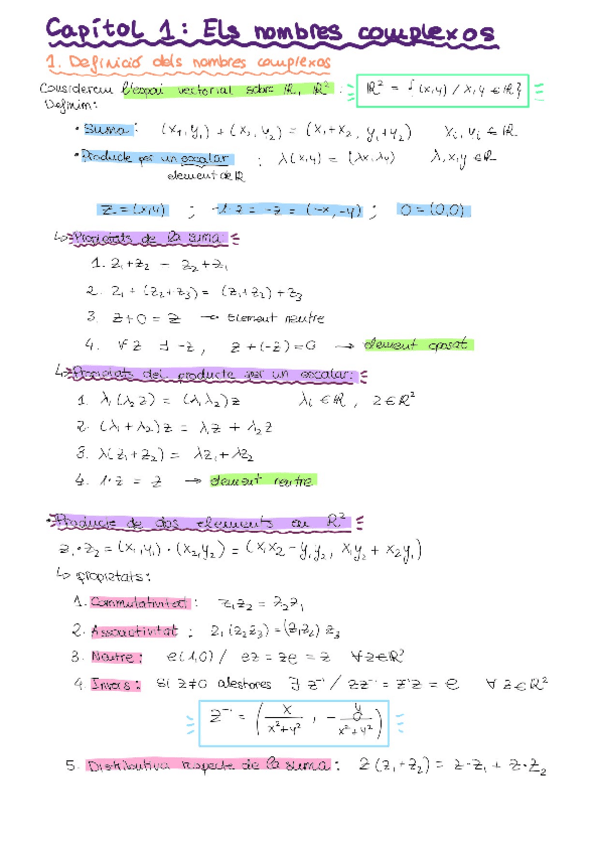 Capítol 1: Els nombres complexos
1. Definició dels nombres complexos
Considerem l'espai vectorial sobre ℝ, ℝ²: ℝ² = {(x,y) / x,y ∈ ℝ}
Definim:
• Suma: (x₁,y₁) + (x₂,y₂) = (x₁+x₂, y₁+y₂) xᵢ, yᵢ ∈ ℝ
• Producte per un escalar: λ(x,y) = (λx, λy) λ,x,y ∈ ℝ
element de ℝ
z = (x,y) ; -1·z = -z = (-x,-y) ; 0 = (0,0)
↳ Propietats de la suma
1. z₁+z₂ = z₂+z₁
2. z₁ + (z₂+z₃) = (z₁+z₂) + z₃
3. z+0 = z → Element neutre
4. ∀z ∃ -z, z+(-z)=0 → element oposat
↳ Propietats del producte per un escalar:
1. λ₁(λ₂z) = (λ₁λ₂)z λᵢ ∈ ℝ, z ∈ ℝ²
2. (λ₁+λ₂)z = λ₁z + λ₂z
3. λ(z₁+z₂) = λz₁ + λz₂
4. 1·z = z → element neutre
• Producte de dos elements en ℝ²
z₁·z₂ = (x₁,y₁)·(x₂,y₂) = (x₁x₂ - y₁y₂, x₁y₂ + x₂y₁)
↳ propietats:
1. Commutativitat: z₁z₂ = z₂z₁
2. Associativitat: z₁(z₂z₃) = (z₁z₂)z₃
3. Neutre: e(1,0) / ez = ze = z ∀z∈ℝ²
4. Invers: Si z≠0 aleshores ∃ z⁻¹ / zz⁻¹ = z⁻¹z = e ∀z∈ℝ²
z⁻¹ = (x/(x²+y²), -y/(x²+y²))
5. Distributiva respecte de la suma: z(z₁+z₂) = z·z₁ + z·z₂